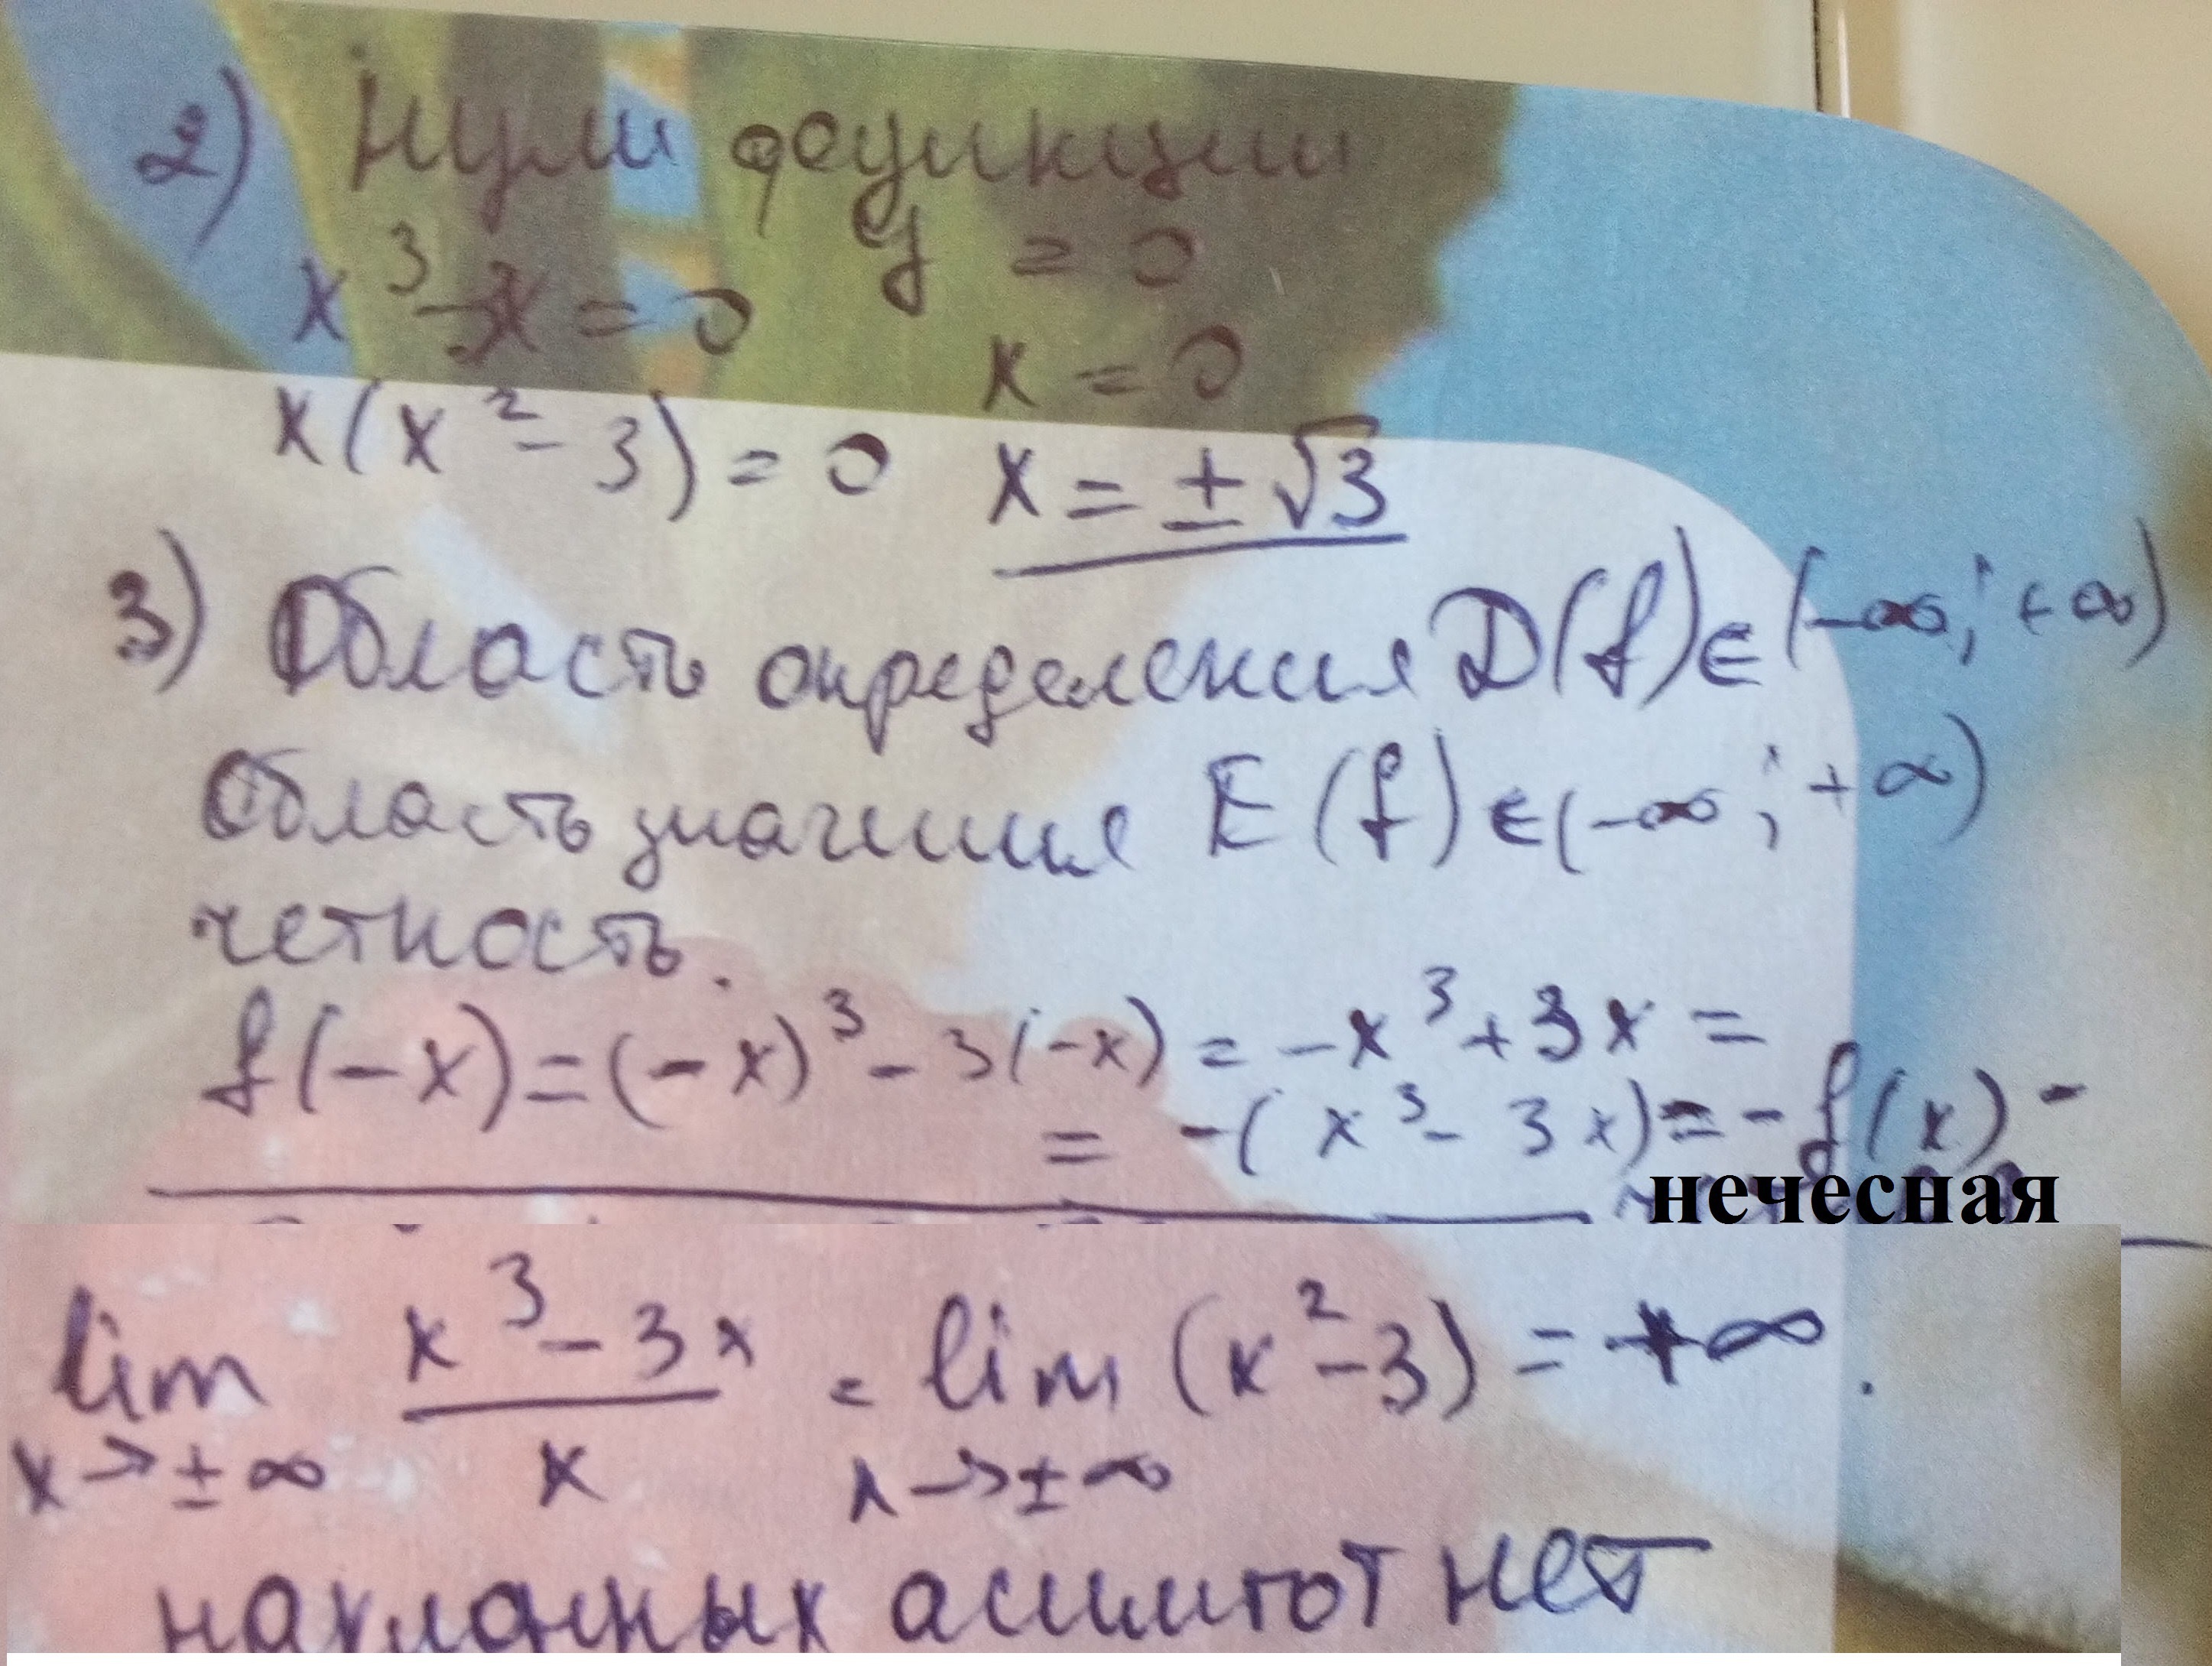 2) Нули функции
y = 0
x³ - 3x = 0
x = 0
x(x² - 3) = 0 x = ± √3
3) Область определения D(f) ∈ (-∞; +∞)
Область значения E(f) ∈ (-∞; +∞)
четность.
f(-x) = (-x)³ - 3(-x) = -x³ + 3x =
= -(x³ - 3x) = - f(x) -
нечесная
lim x→±∞ (x³ - 3x)/x = lim x→±∞ (x² - 3) = +∞.
наклонных асимптот нет